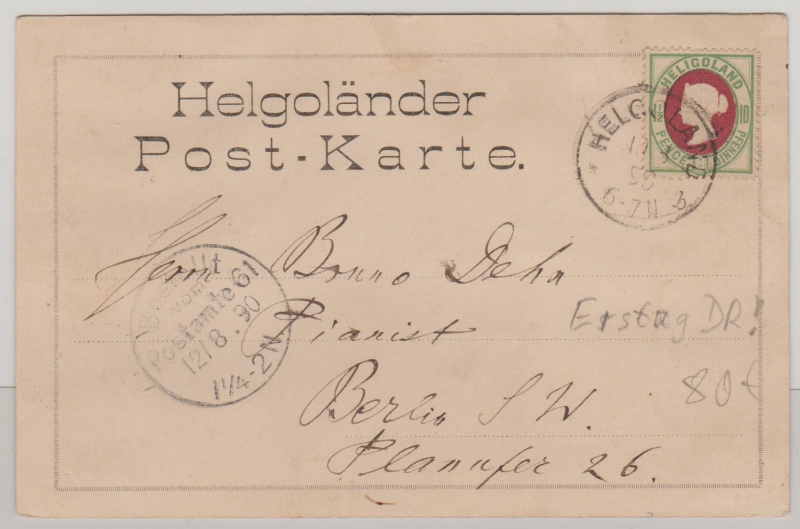 Helgoländer
Post-Karte.
HELIGOLAND
10
PENCE PFENNIG
HELGOLAND
90
6-7N
Herrn Bruno Dehn
Pianist
Berlin S W.
Planufer 26.
Bestellt
vom
Postamte 61
12/8.90
1¼-2N.
Erstag DR!
80€